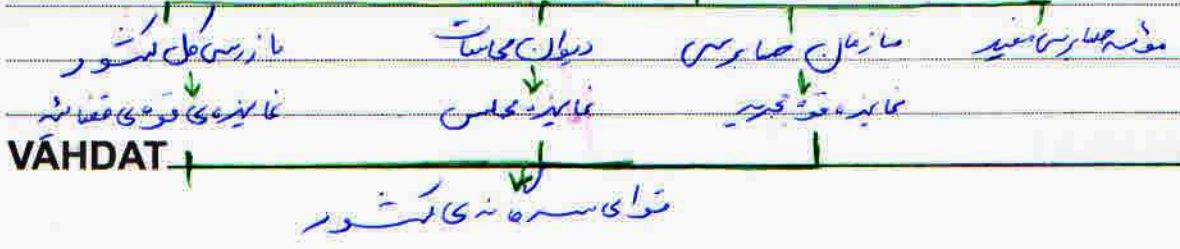 مؤسسه حسابرسی مفید سازمان حسابرسی دیوان محاسبات بازرسی کل کشور
نماینده قوه مجریه نماینده مجلس نماینده‌ی قوه‌ی قضائیه
VAHDAT
قوای سه گانه‌ی کشور